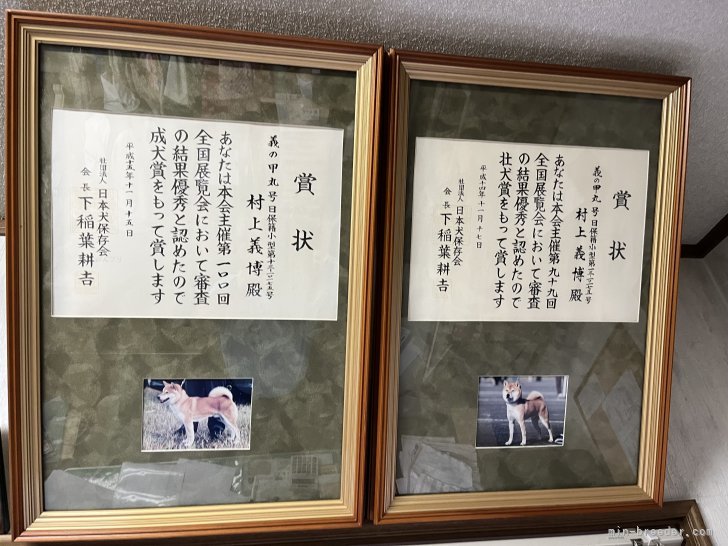 賞状
義の甲丸号
村上義博殿
あなたは本会主催第一〇〇回
全国展覧会において審査
の結果優秀と認めたので
成犬賞をもって賞します
平成十五年十一月十五日
社団法人 日本犬保存会
会長 下稲葉耕吉
賞状
義の甲丸号
村上義博殿
あなたは本会主催第九十九回
全国展覧会において審査
の結果優秀と認めたので
壮犬賞をもって賞します
平成十四年十一月十七日
社団法人 日本犬保存会
会長 下稲葉耕吉
min-breeder.com